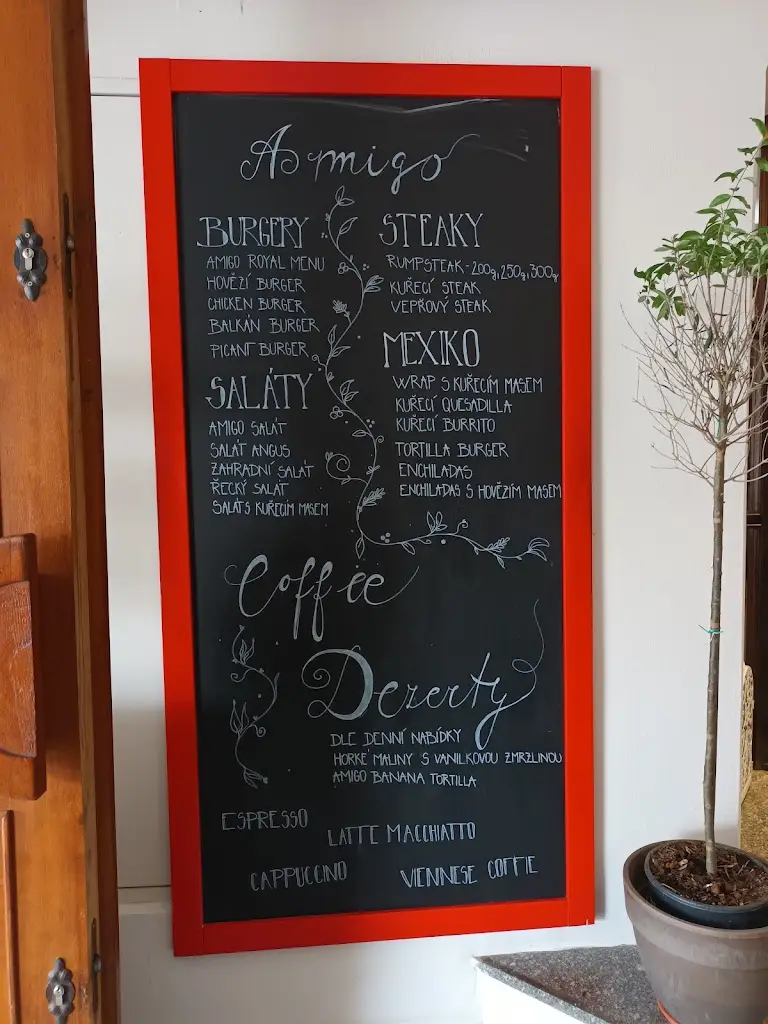 Amigo
BURGERY
AMIGO ROYAL MENU
HOVĚZÍ BURGER
CHICKEN BURGER
BALKÁN BURGER
PICANT BURGER
STEAKY
RUMPSTEAK - 200g, 250g, 300g
KUŘECÍ STEAK
VEPŘOVÝ STEAK
SALÁTY
AMIGO SALÁT
SALÁT ANGUS
ZAHRADNÍ SALÁT
ŘECKÝ SALÁT
SALÁT S KUŘECÍM MASEM
MEXIKO
WRAP S KUŘECÍM MASEM
KUŘECÍ QUESADILLA
KUŘECÍ BURRITO
TORTILLA BURGER
ENCHILADAS
ENCHILADAS S HOVĚZÍM MASEM
Coffee
Dezerty
DLE DENNÍ NABÍDKY
HORKÉ MALINY S VANILKOVOU ZMRZLINOU
AMIGO BANANA TORTILLA
ESPRESSO
LATTE MACCHIATTO
CAPPUCCINO
VIENNESE COFFIE